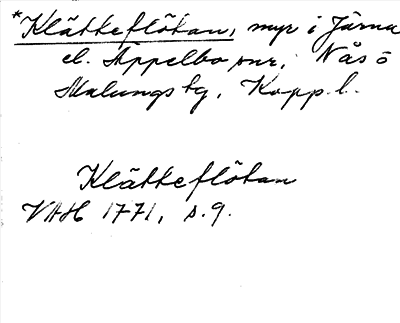 *Klätteflötan, myr i Järna
el. Äppelbo snr, Nås o
Malungs tg, Kopp. l.
Klätteflötan
VAH 1771, s. 9.